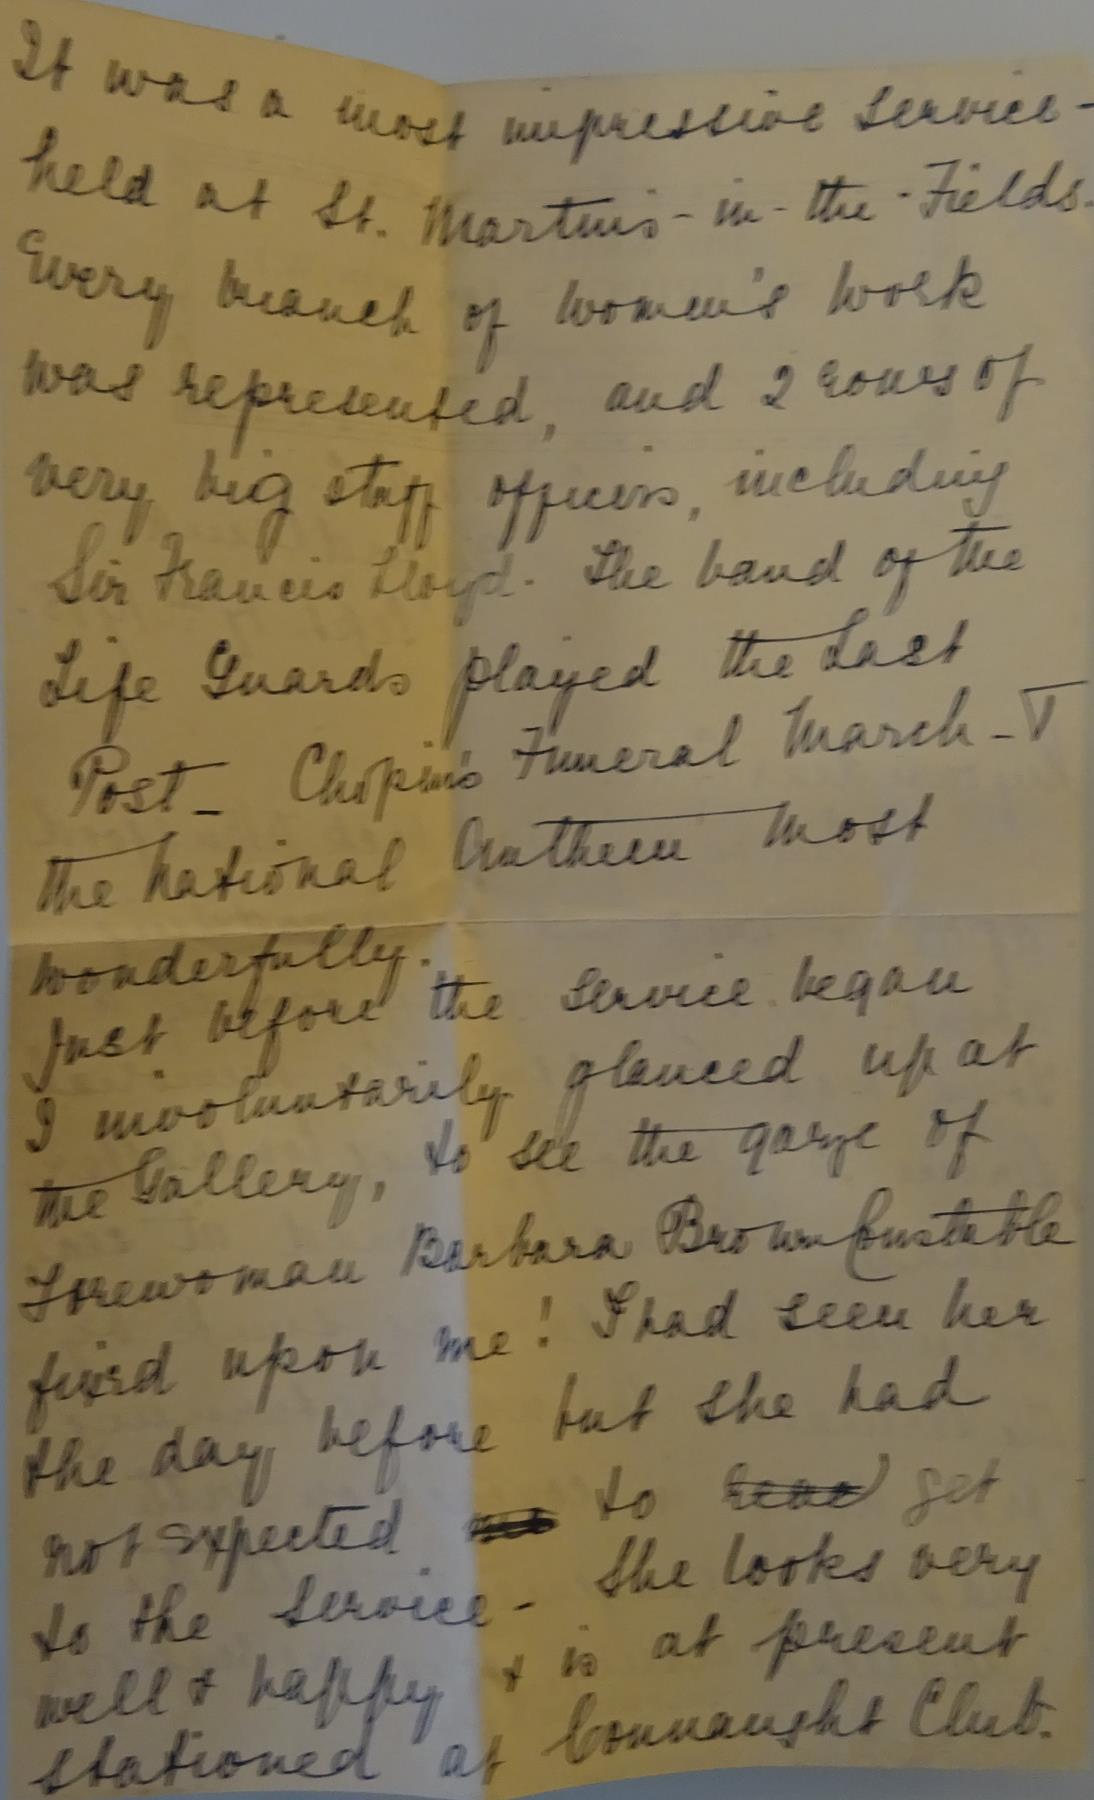 It was a most impressive service -
held at St. Martin's-in-the-Fields.
Every branch of Women's Work
was represented, and 2 rows of
very big staff officers, including
Sir Francis Lloyd. The band of the
Life Guards played the Last
Post - Chopin's Funeral March -
the National Anthem most
wonderfully.
Just before the service began
I involuntarily glanced up at
the Gallery, to see the gaze of
Forewoman Barbara Brown Constable
fixed upon me! I had seen her
the day before but she had
not expected to get
to the service - She looks very
well & happy & is at present
stationed at Connaught Club.